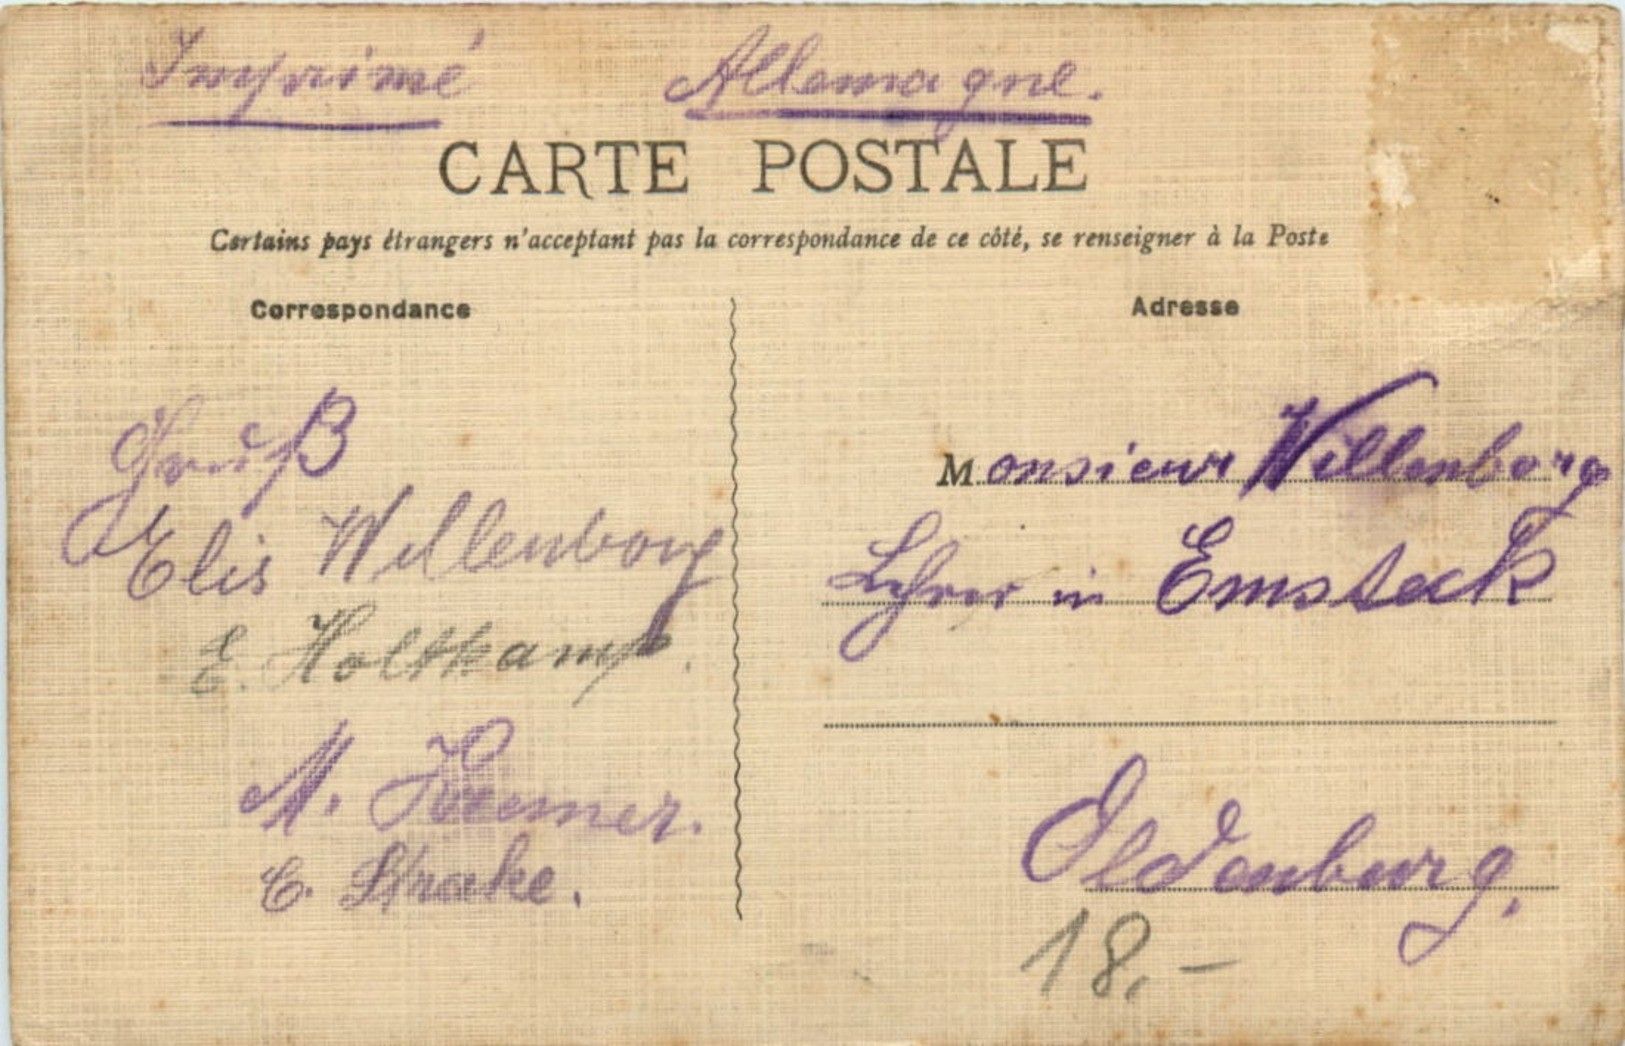 Imprimé Allemagne.
CARTE POSTALE
Certains pays étrangers n'acceptant pas la correspondance de ce côté, se renseigner à la Poste
Correspondance
Gruß
Elis Willenborg
E. Holtkamp.
M. Kremer.
C. Strake.
Adresse
Monsieur Willenborg
Lehrer in Emsteck
Oldenburg.
18,-